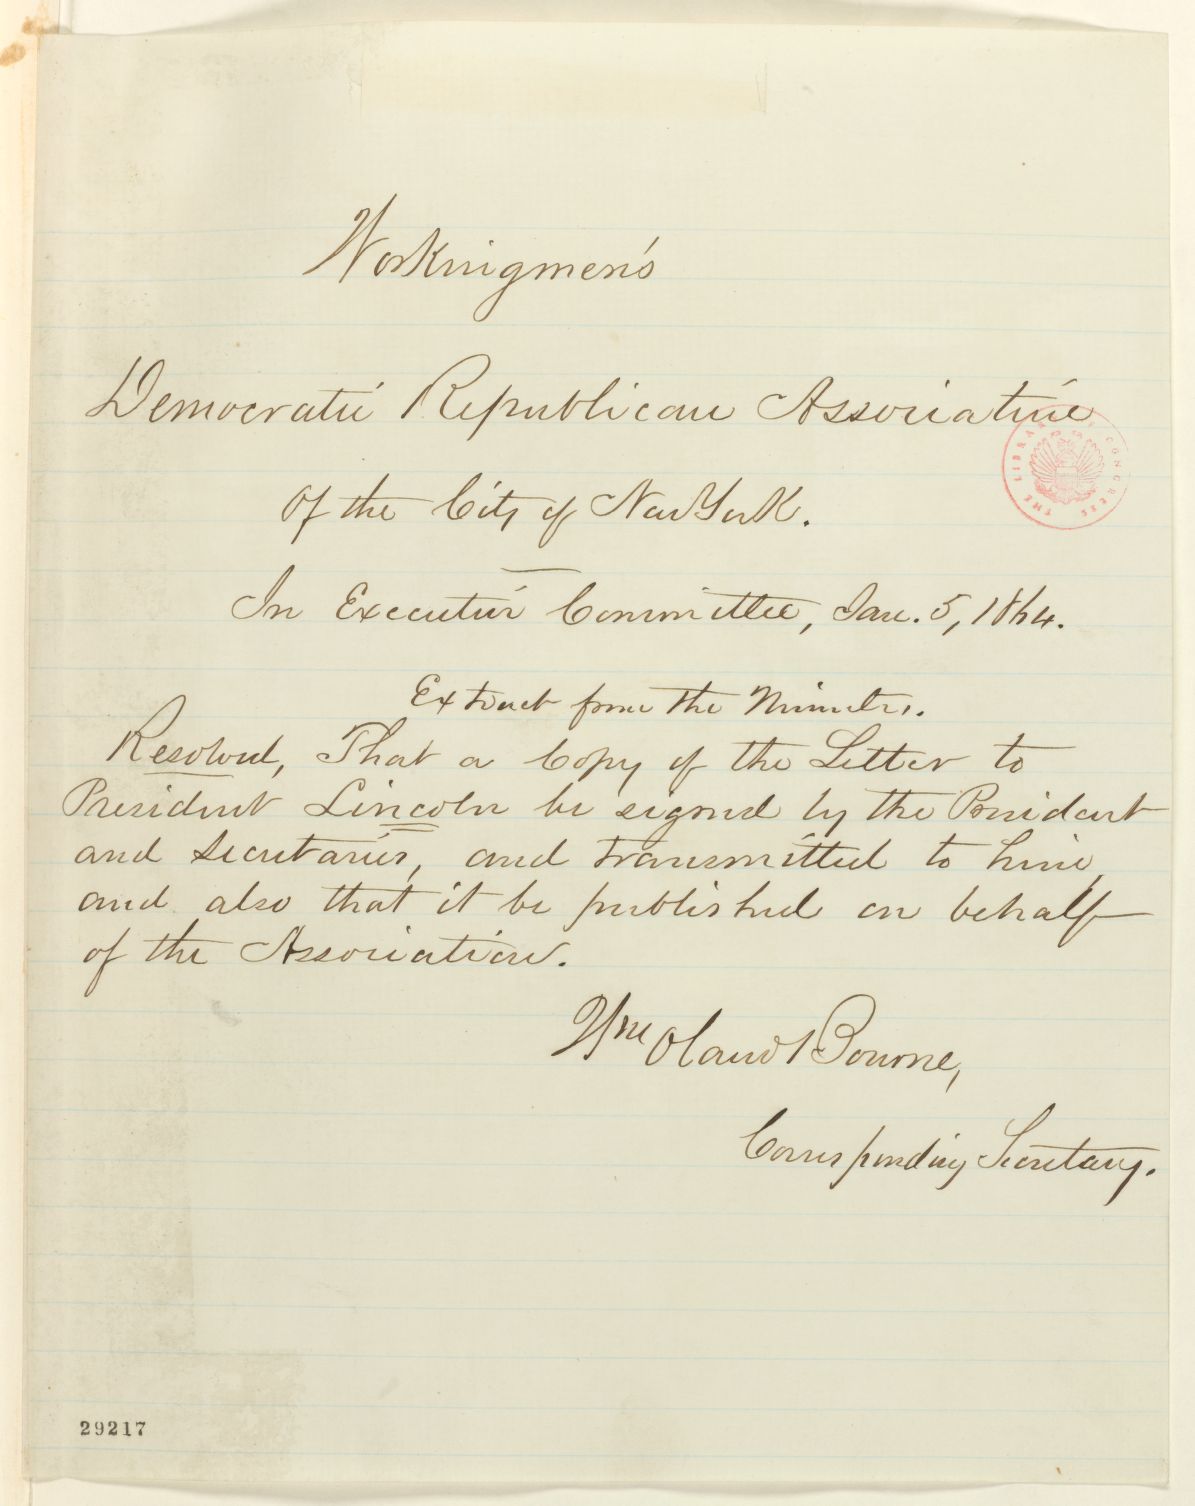 Workingmen's
Democratic Republican Association
of the City of New York.
In Executive Committee, Jan. 5, 1864.
Extract from the Minutes.
Resolved, That a Copy of the Letter to
President Lincoln be signed by the President
and Secretaries, and transmitted to him,
and also that it be published on behalf
of the Association.
Wm Oland Bourne,
Corresponding Secretary.
THE LIBRARY OF CONGRESS
29217